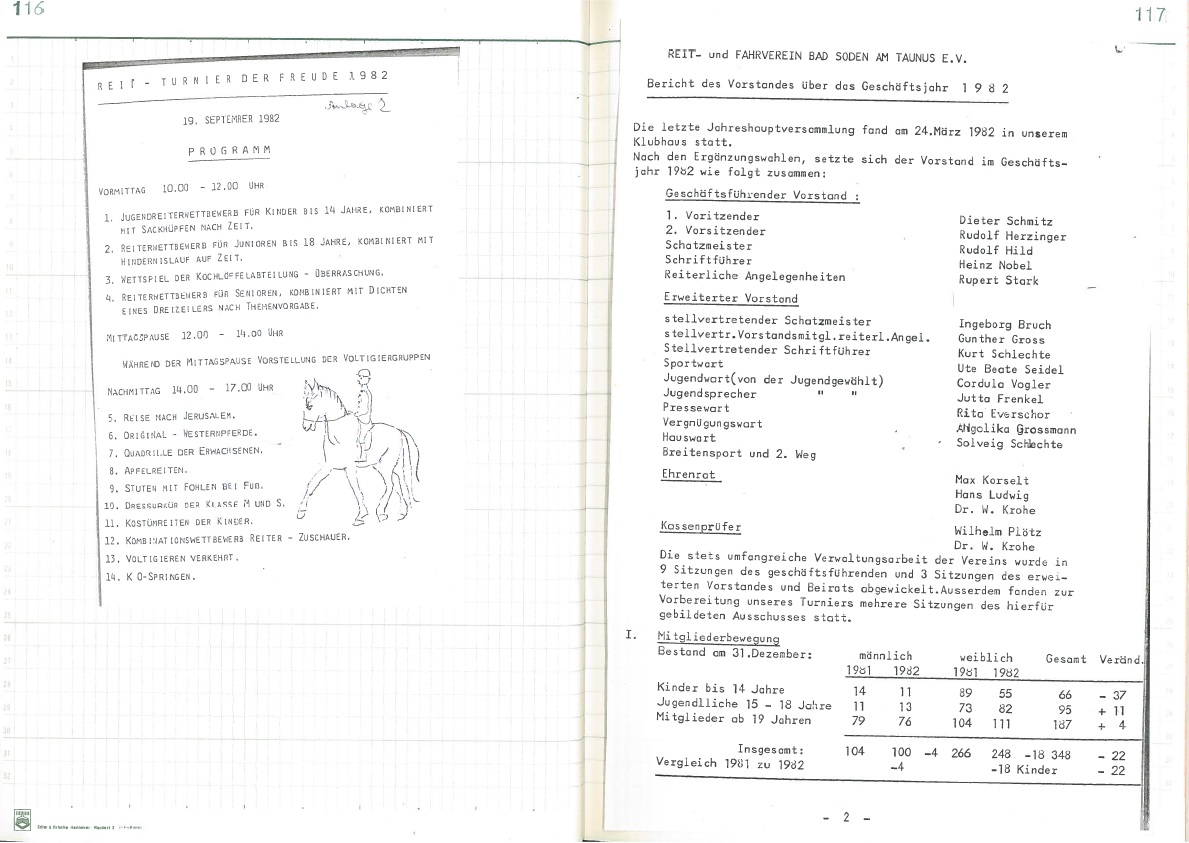 116
REIT - TURNIER DER FREUDE 1982
Anlage 2
19. SEPTEMBER 1982
PROGRAMM
VORMITTAG 10.00 - 12.00 UHR
1. JUGENDREITERWETTBEWERB FÜR KINDER BIS 14 JAHRE, KOMBINIERT
MIT SACKHÜPFEN NACH ZEIT.
2. REITERWETTBEWERB FÜR JUNIOREN BIS 18 JAHRE, KOMBINIERT MIT
HINDERNISLAUF AUF ZEIT.
3. WETTSPIEL DER KOCHLÖFFELABTEILUNG - ÜBERRASCHUNG.
4. REITERWETTBEWERB FÜR SENIOREN, KOMBINIERT MIT DICHTEN
EINES DREIZEILERS NACH THEMENVORGABE.
MITTAGSPAUSE 12.00 - 14.00 UHR
WÄHREND DER MITTAGSPAUSE VORSTELLUNG DER VOLTIGIERGRUPPEN
NACHMITTAG 14.00 - 17.00 UHR
5. REISE NACH JERUSALEM.
6. ORIGINAL - WESTERNPFERDE.
7. QUADRILLE DER ERWACHSENEN.
8. APFELREITEN.
9. STUTEN MIT FOHLEN BEI FUß.
10. DRESSURKÜR DER KLASSE M UND S.
11. KOSTÜMREITEN DER KINDER.
12. KOMBINATIONSWETTBEWERB REITER - ZUSCHAUER.
13. VOLTIGIEREN VERKEHRT.
14. K O-SPRINGEN.
117
REIT- und FAHRVEREIN BAD SODEN AM TAUNUS E.V.
Bericht des Vorstandes über das Geschäftsjahr 1 9 8 2
Die letzte Jahreshauptversammlung fand am 24.März 1982 in unserem
Klubhaus statt.
Nach den Ergänzungswahlen, setzte sich der Vorstand im Geschäfts-
jahr 1982 wie folgt zusammen:
Geschäftsführender Vorstand :
1. Voritzender Dieter Schmitz
2. Vorsitzender Rudolf Herzinger
Schatzmeister Rudolf Hild
Schriftführer Heinz Nobel
Reiterliche Angelegenheiten Rupert Stark
Erweiterter Vorstand
stellvertretender Schatzmeister Ingeborg Bruch
stellvertr.Vorstandsmitgl.reiterl.Angel. Gunther Gross
Stellvertretender Schriftführer Kurt Schlechte
Sportwart Ute Beate Seidel
Jugendwart(von der Jugendgewählt) Cordula Vogler
Jugendsprecher " " Jutta Frenkel
Pressewart Rita Everschor
Vergnügungswart Angolika Grossmann
Hauswart Solveig Schlechte
Breitensport und 2. Weg
Ehrenrat Max Korselt
Hans Ludwig
Dr. W. Krohe
Kassenprüfer Wilhelm Plötz
Dr. W. Krohe
Die stets umfangreiche Verwaltungsarbeit der Vereins wurde in
9 Sitzungen des geschäftsführenden und 3 Sitzungen des erwei-
terten Vorstandes und Beirats abgewickelt.Ausserdem fanden zur
Vorbereitung unseres Turniers mehrere Sitzungen des hierfür
gebildeten Ausschusses statt.
I. Mitgliederbewegung
Bestand am 31.Dezember: männlich weiblich Gesamt Veränd.
1981 1982 1981 1982
Kinder bis 14 Jahre 14 11 89 55 66 - 37
Jugendlliche 15 - 18 Jahre 11 13 73 82 95 + 11
Mitglieder ab 19 Jahren 79 76 104 111 187 + 4
Insgesamt: 104 100 -4 266 248 -18 348 - 22
Vergleich 1981 zu 1982 -4 -18 Kinder - 22
- 2 -